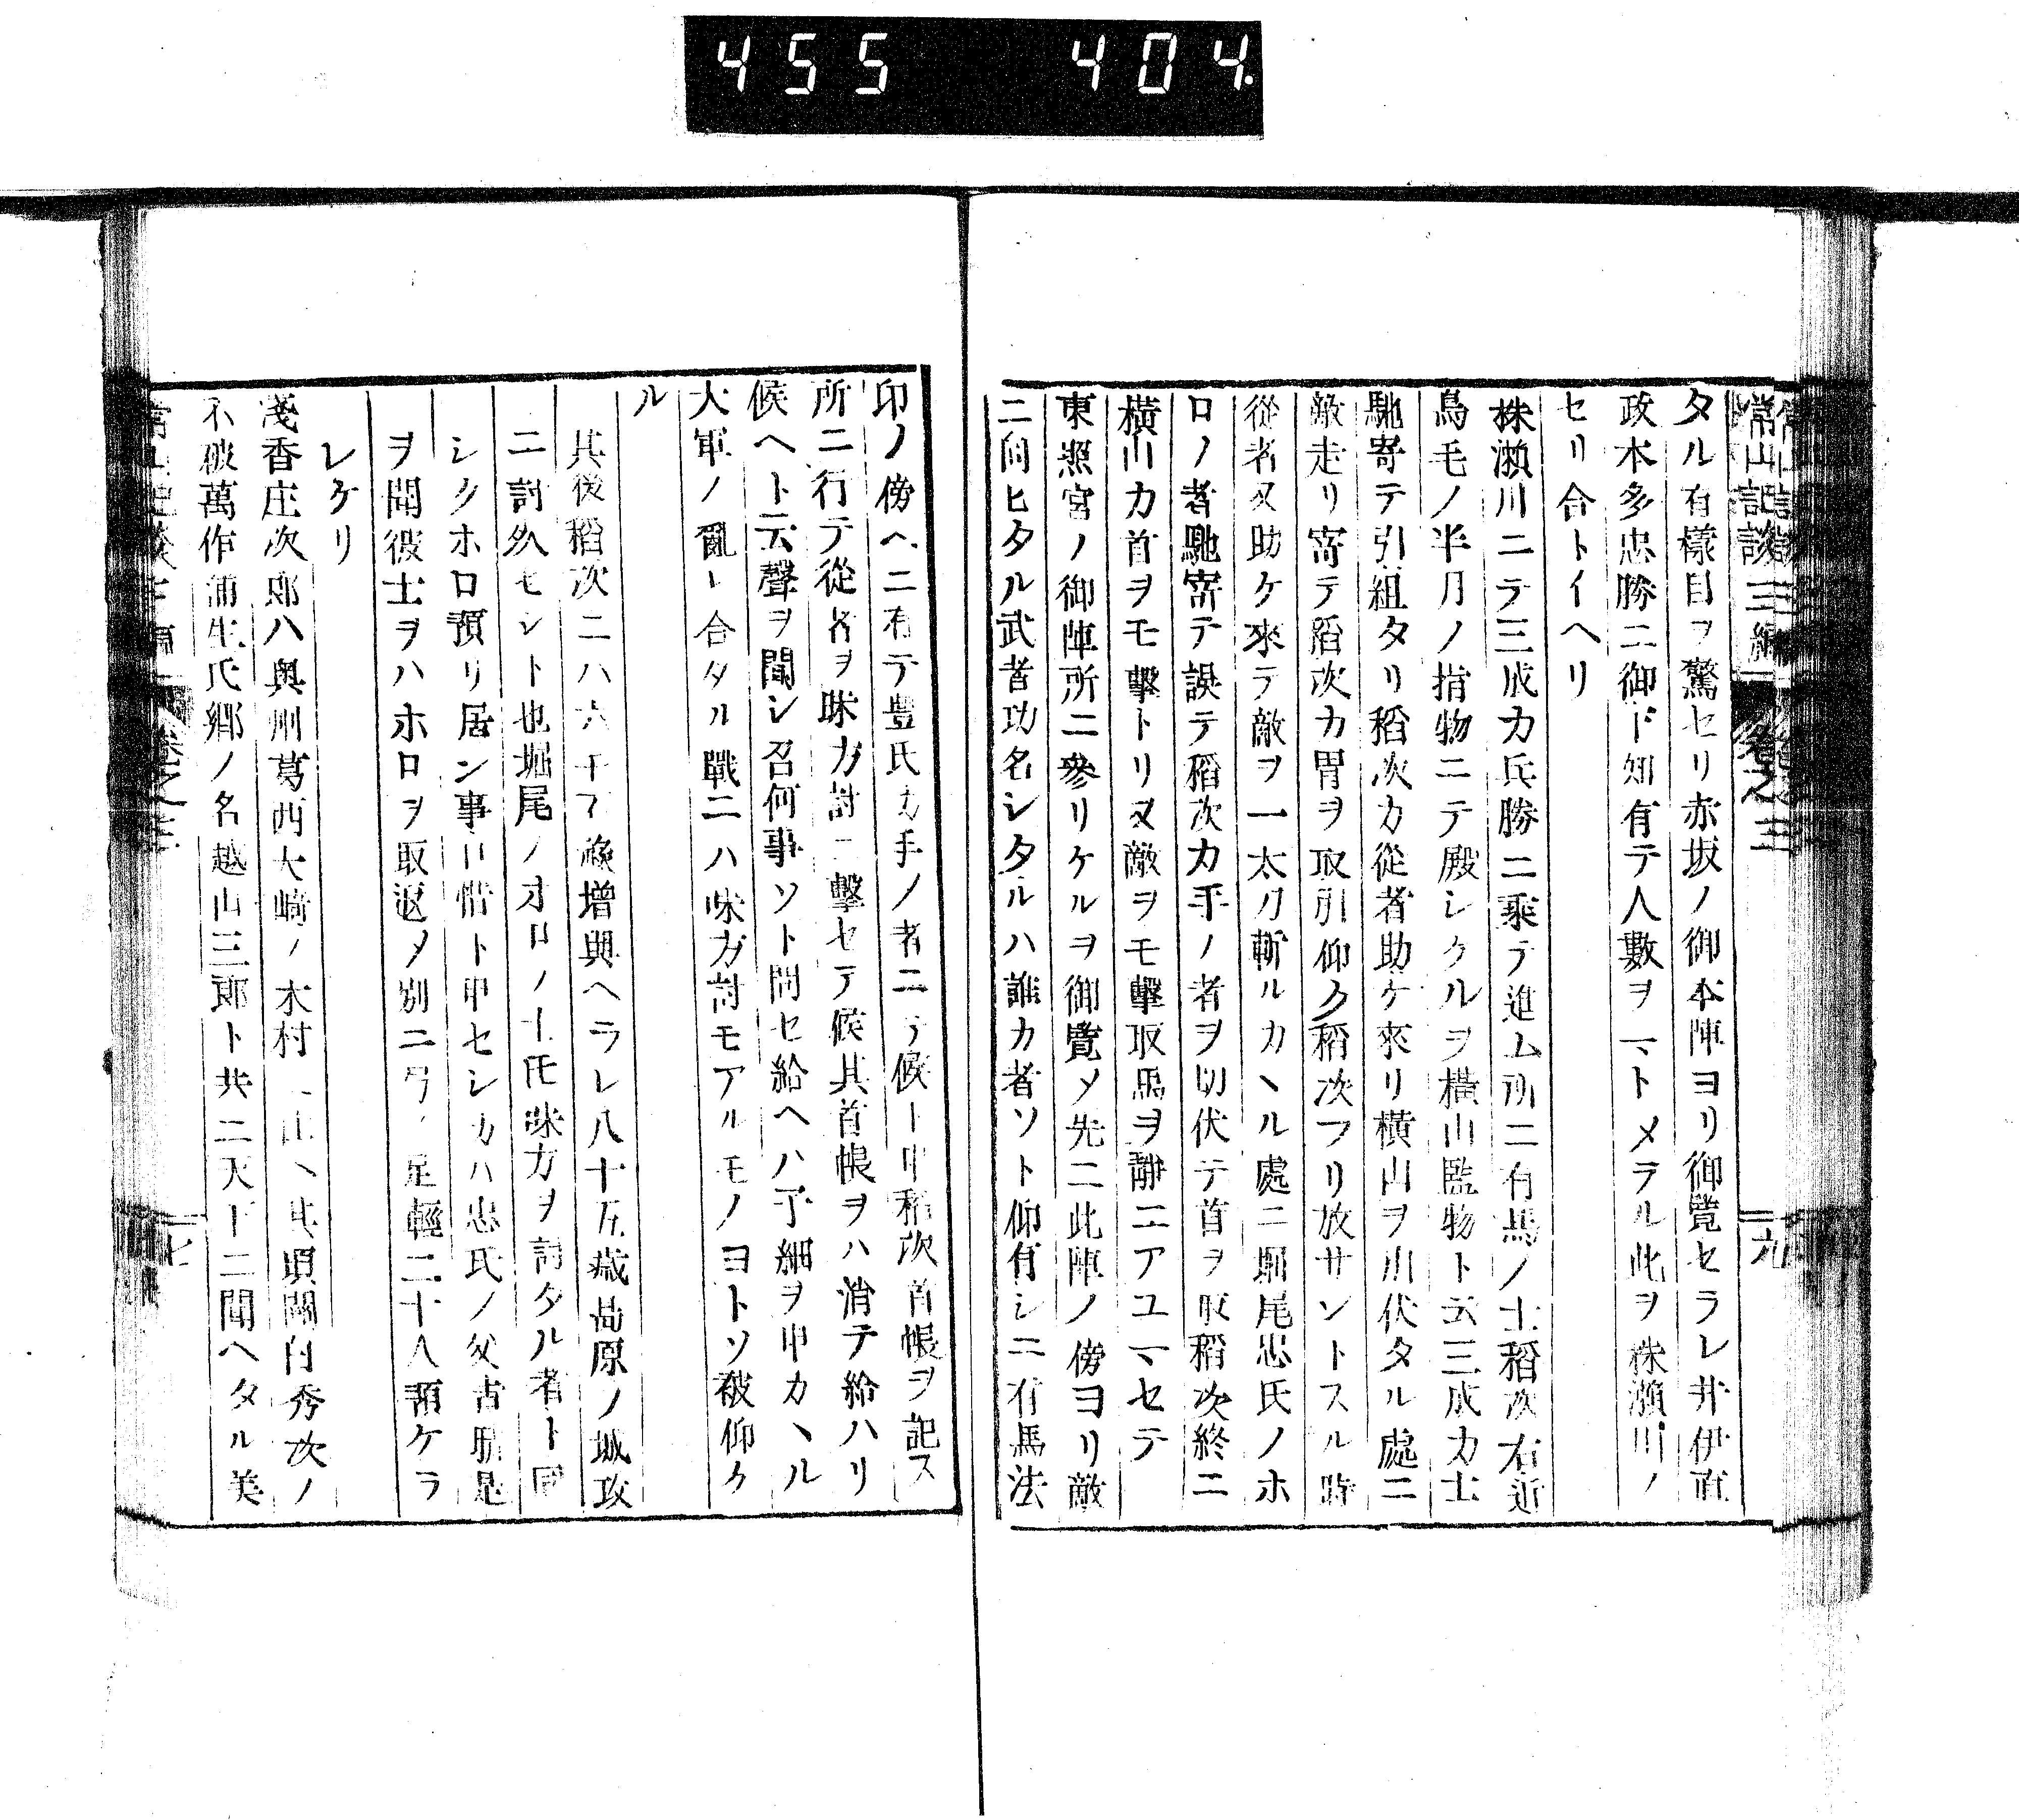 455 404.
常山記談三編 卷之三 六
タル有樣目ヲ驚セリ赤坂ノ御本陣ヨリ御覽セラレ井伊直
政本多忠勝ニ御下知有テ人數ヲ一ヽトメラル此ヲ株瀬川ノ
セリ合トイヘリ
株瀬川ニテ三成カ兵勝ニ乘テ進ム所ニ有馬ノ士稻次右近
鳥毛ノ半月ノ指物ニテ殿シクルヲ橫山監物ト云三成カ士
馳寄テ引組タリ稻次カ從者助ケ來リ橫山ヲ川伏タル處ニ
敵走リ寄テ稻次カ冑ヲ取引仰ク稻次フリ放サントスル時
從者又助ケ來テ敵ヲ一太刀斬ルカヽル處ニ堀尾忠氏ノホ
ロノ者馳寄テ誤テ稻次カ手ノ者ヲ切伏テ首ヲ取稻次終ニ
橫山カ首ヲモ擊トリ又敵ヲモ擊取馬ヲ靜ニアユマセテ
東照宮ノ御陣所ニ參リケルヲ御覽メ先ニ此陣ノ傍ヨリ敵
ニ向ヒタル武者功名シタルハ誰カ者ソト仰有シニ有馬法
印ノ傍ヘニ有テ豊氏カ手ノ者ニテ候ト申稻次首帳ヲ記ス
所ニ行テ從者ヲ味方討ニ擊セテ候其首帳ヲハ消テ給ハリ
候ヘト云聲ヲ聞シ召何事ソト問セ給ヘハ子細ヲ申カヽル
大軍ノ亂レ合タル戰ニハ味方討モアルモノヨトソ被仰ケ
ル
其後稻次ニハ六千石祿增與ヘラレ八十五歲嶋原ノ城攻
ニ討死セシト也堀尾ノホロノ士氏味方ヲ討タル者ト同
シクホロ預リ居ン事口惜ト申セシカハ忠氏ノ父吉晴是
ヲ聞彼士ヲハホロヲ取返メ別ニ弓ノ足輕二十人預ケラ
レケリ
淺香庄次郎ハ奧州葛西大崎ノ木村 其頃關白秀次ノ
不破萬作蒲生氏郷ノ名越山三郎ト共ニ天下ニ聞ヘタル美
卷之三 七